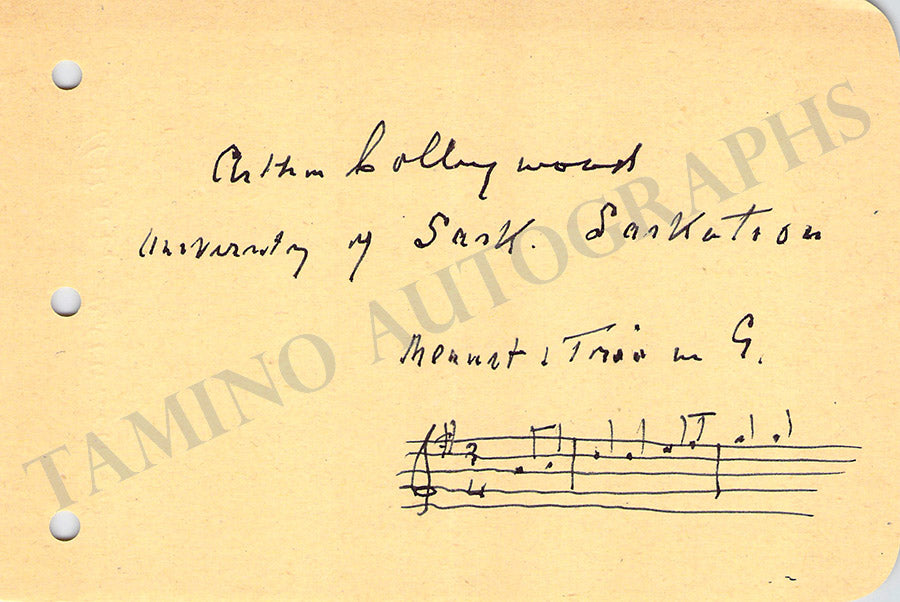 Arthur Collingwood
University of Sask. Saskatoon
Menuet & Trio in G.
3
4
TAMINO AUTOGRAPHS